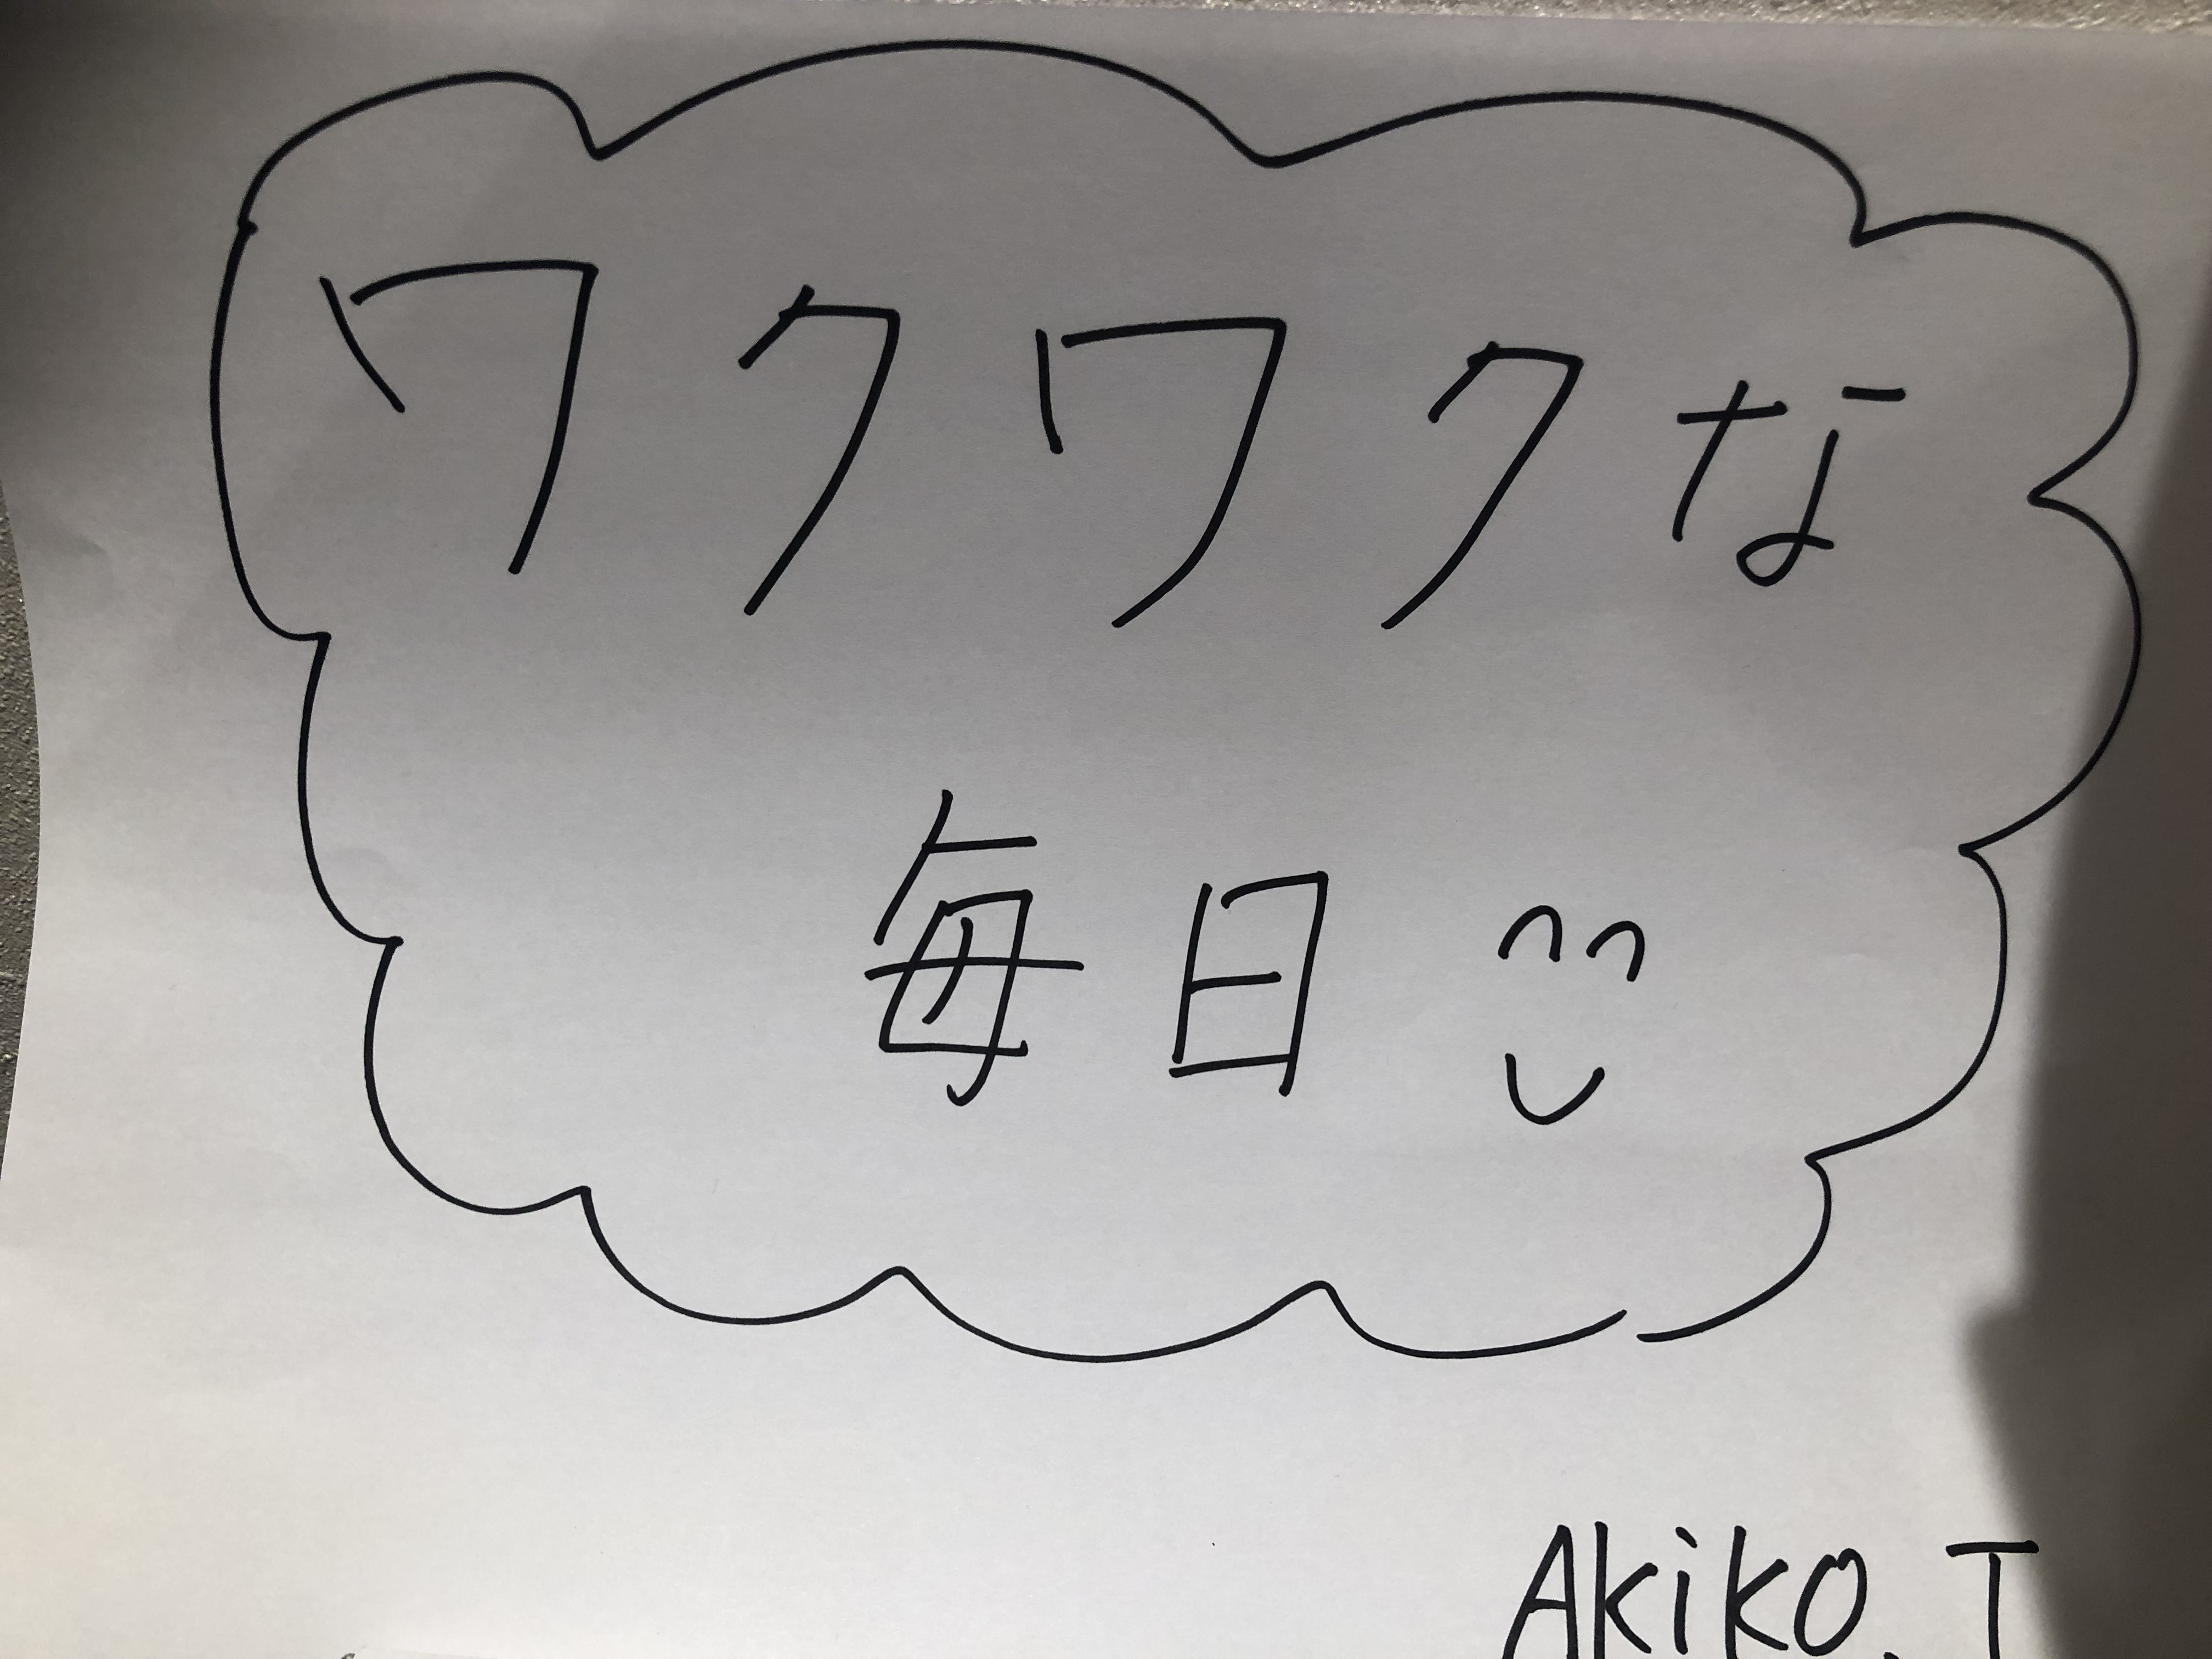 ワクワクな
毎日
Akiko.T